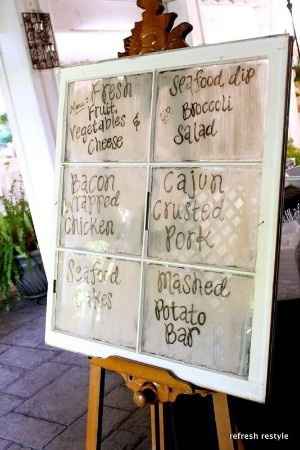 Menu: Fresh
Fruit,
Vegetables &
Cheese
Seafood dip
Broccoli
Salad
Bacon
Wrapped
Chicken
Cajun
Crusted
Pork
Seafood
Cakes
Mashed
Potato
Bar
refresh restyle